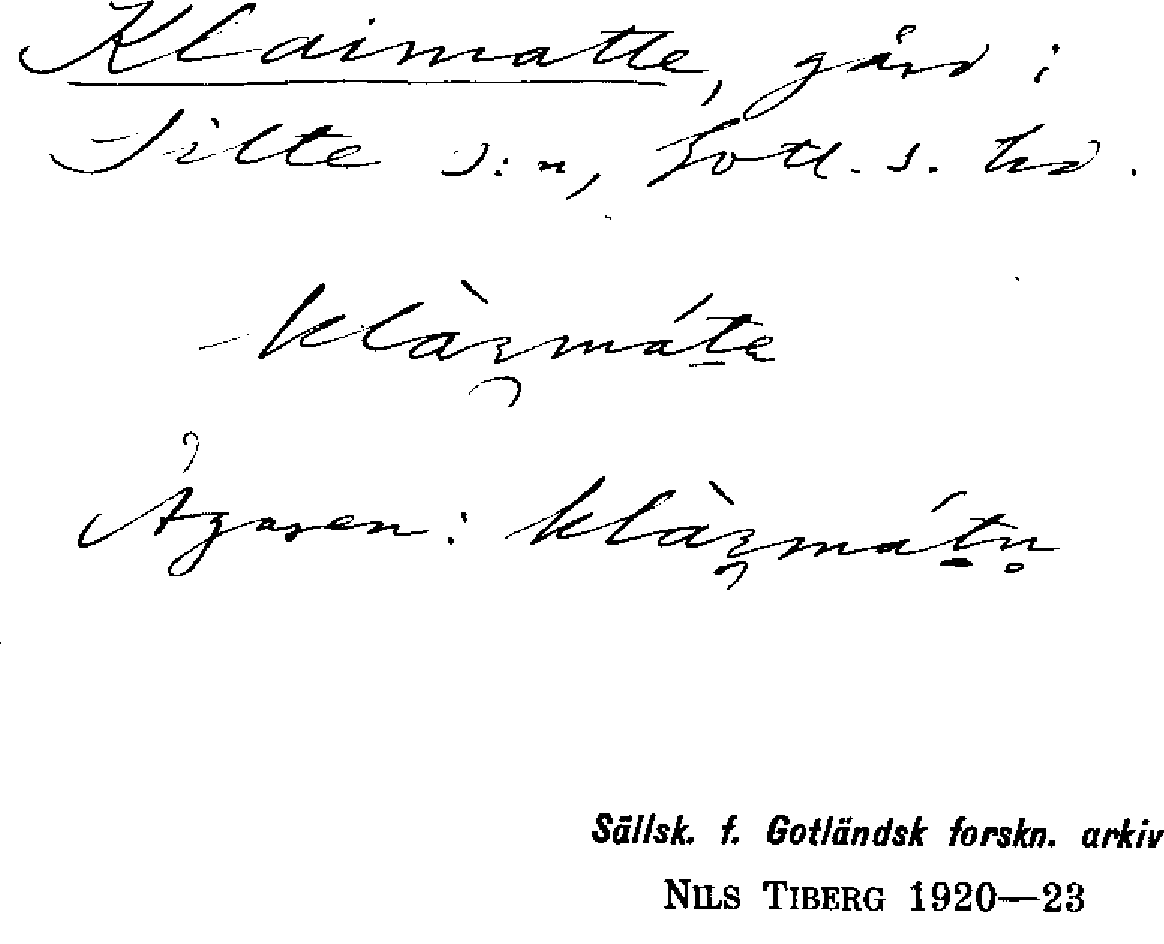 Klaimatte, gård i
Silte s:n, Gotl. s. hd.
klàımáte
Ägaren: klàımátn̥
Sällsk. f. Gotländsk forskn. arkiv
NILS TIBERG 1920—23